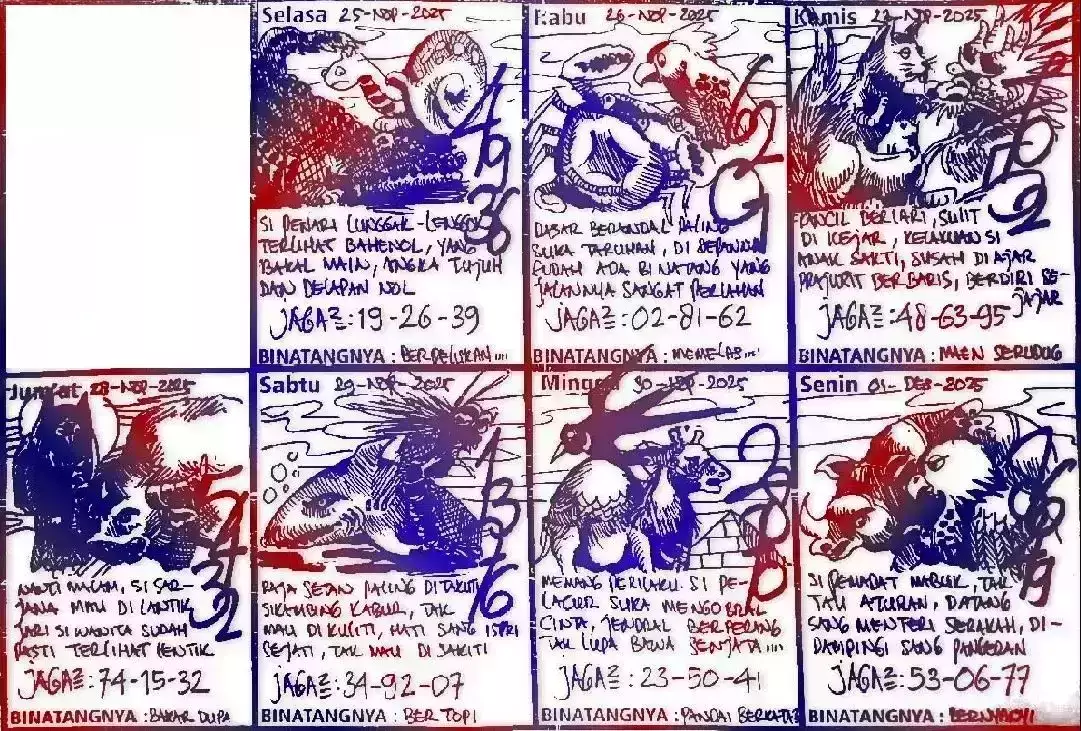 Selasa 25-NOP-2025
SI PENARI LUNGGAK-LENGGOK
TERLIHAT BAHENOL, YANG
BAKAL MAIN, ANGKA TUJUH
DAN DELAPAN NOL
JAGA2=:19-26-39
BINATANGNYA :
Rabu 26-NOP-2025
DASAR BERANDAL PALING
SUKA TARUHAN, DI DEPANNYA
SUDAH ADA BINATANG YANG
JALANNYA SANGAT PERLAHAN
JAGA2=:02-81-62
BINATANGNYA :
Kamis 27-NOP-2025
KANCIL BERLARI, SULIT
DI KEJAR, KELAKUAN SI
ANAK SAKTI, SUSAH DI AJAR
PRAJURIT BERBARIS, BERDIRI SE-
JAJAR
JAGA2=:48-63-95
BINATANGNYA : MAEN SERUDUG
Jum'at 28-NOP-2025
NANTI MALAM, SI SAR-
JANA MAU DI LANTIK
JARI SI WANITA SUDAH
PASTI TERLIHAT LENTIK
JAGA2=:74-15-32
BINATANGNYA : BAKAR DUPA
Sabtu 29-NOP-2025
RAJA SETAN PALING DI TAKUTI
SIKAMBING KABUR, TAK
MAU DI KULITI, HATI SANG ISTRI
SEJATI, TAK MAU DI SAKITI
JAGA2=:34-92-07
BINATANGNYA : BERTOPI
Minggu 30-NOP-2025
MEMANG PERILAKU SI PE-
LACUR SUKA MENGOBRAL
CINTA, JENDRAL BERPERANG
TAK LUPA BAWA SENJATA....
JAGA2=:23-50-41
BINATANGNYA : PANDAI BERKATA2
Senin 01-DES-2025
SI PEMADAT MABUK, TAK
TAU ATURAN, DATANG
SANG MENTERI SERAKAH, DI-
DAMPINGI SANG PANGERAN
JAGA2=:53-06-77
BINATANGNYA : BERNYANYI